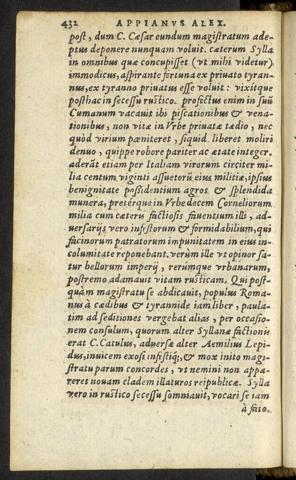 432 APPIANVS ALEX.
post, dum C. Cæsar eundum magistratum ade-
ptus deponere nunquam voluit. cæterum Sylla
in omnibus quæ concupisset (vt mihi videtur)
immodicus, aspirante fortuna ex priuato tyran-
nus, ex tyranno priuatus esse voluit: vixitque
posthac in secessu rustico. profectus enim in suũ
Cumanum vacauit ibi piscationibus & vena-
tionibus, non vitæ in Vrbe priuatæ tædio, nec
quòd virium pœniteret, siquid liberet moliri
denuo, quippe robore pariter ac ætate integer.
aderãt etiam per Italiam virorum circiter mi-
lia centum viginti assuetorũ eius militiæ, ipsius
benignitate possidentium agros & splendida
munera, pretérque in Vrbe decem Corneliorum
milia cum cæteris factiosis fauentium illi, ad-
uersarijs vero infestorum & formidabilium, qui
facinorum patratorum impunitatem in eius in-
columitate reponebant. verùm ille vt opinor sa-
tur bellorum imperij, rerúmque vrbanarum,
postremo adamauit vitam rusticam. Qui post-
quàm magistratu se abdicauit, populus Roma-
nus à cædibus & tyrannide iam liber, paula-
tim ad seditiones vergebat alias, per occasio-
nem consulum, quorum alter Syllanæ factionis
erat C. Catulus, aduersæ alter Aemilius Lepi-
dus, inuicem exosi infestiq;, & mox inito magi-
stratu parum concordes, vt nemini non appa-
reret nouam cladem illaturos reipublicæ. Sylla
vero in rustico secessu somniauit, vocari se iam
à fato.